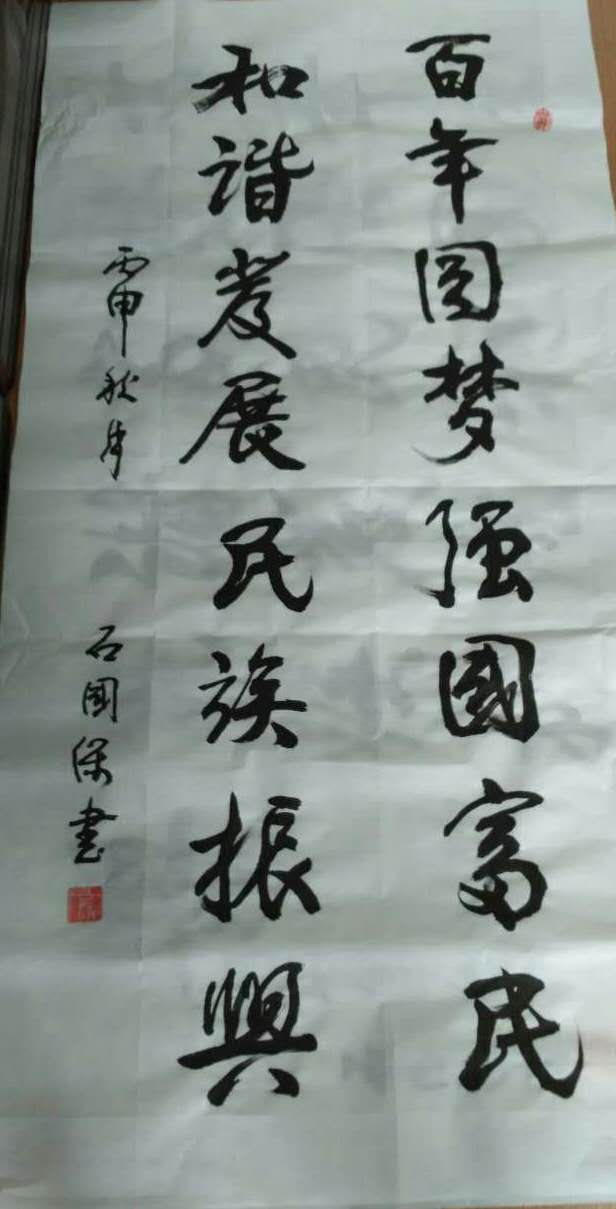 百年圆梦强國富民
和谐發展民族振興
丙申秋
石國保書